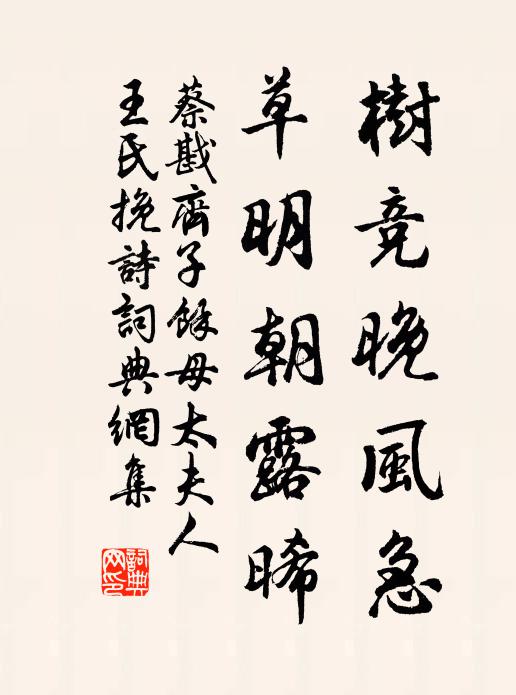 樹竞晚風急
草明朝露晞
蔡戡齊子餘母太夫人
王氏挽詩詞典網集
詞典
网印